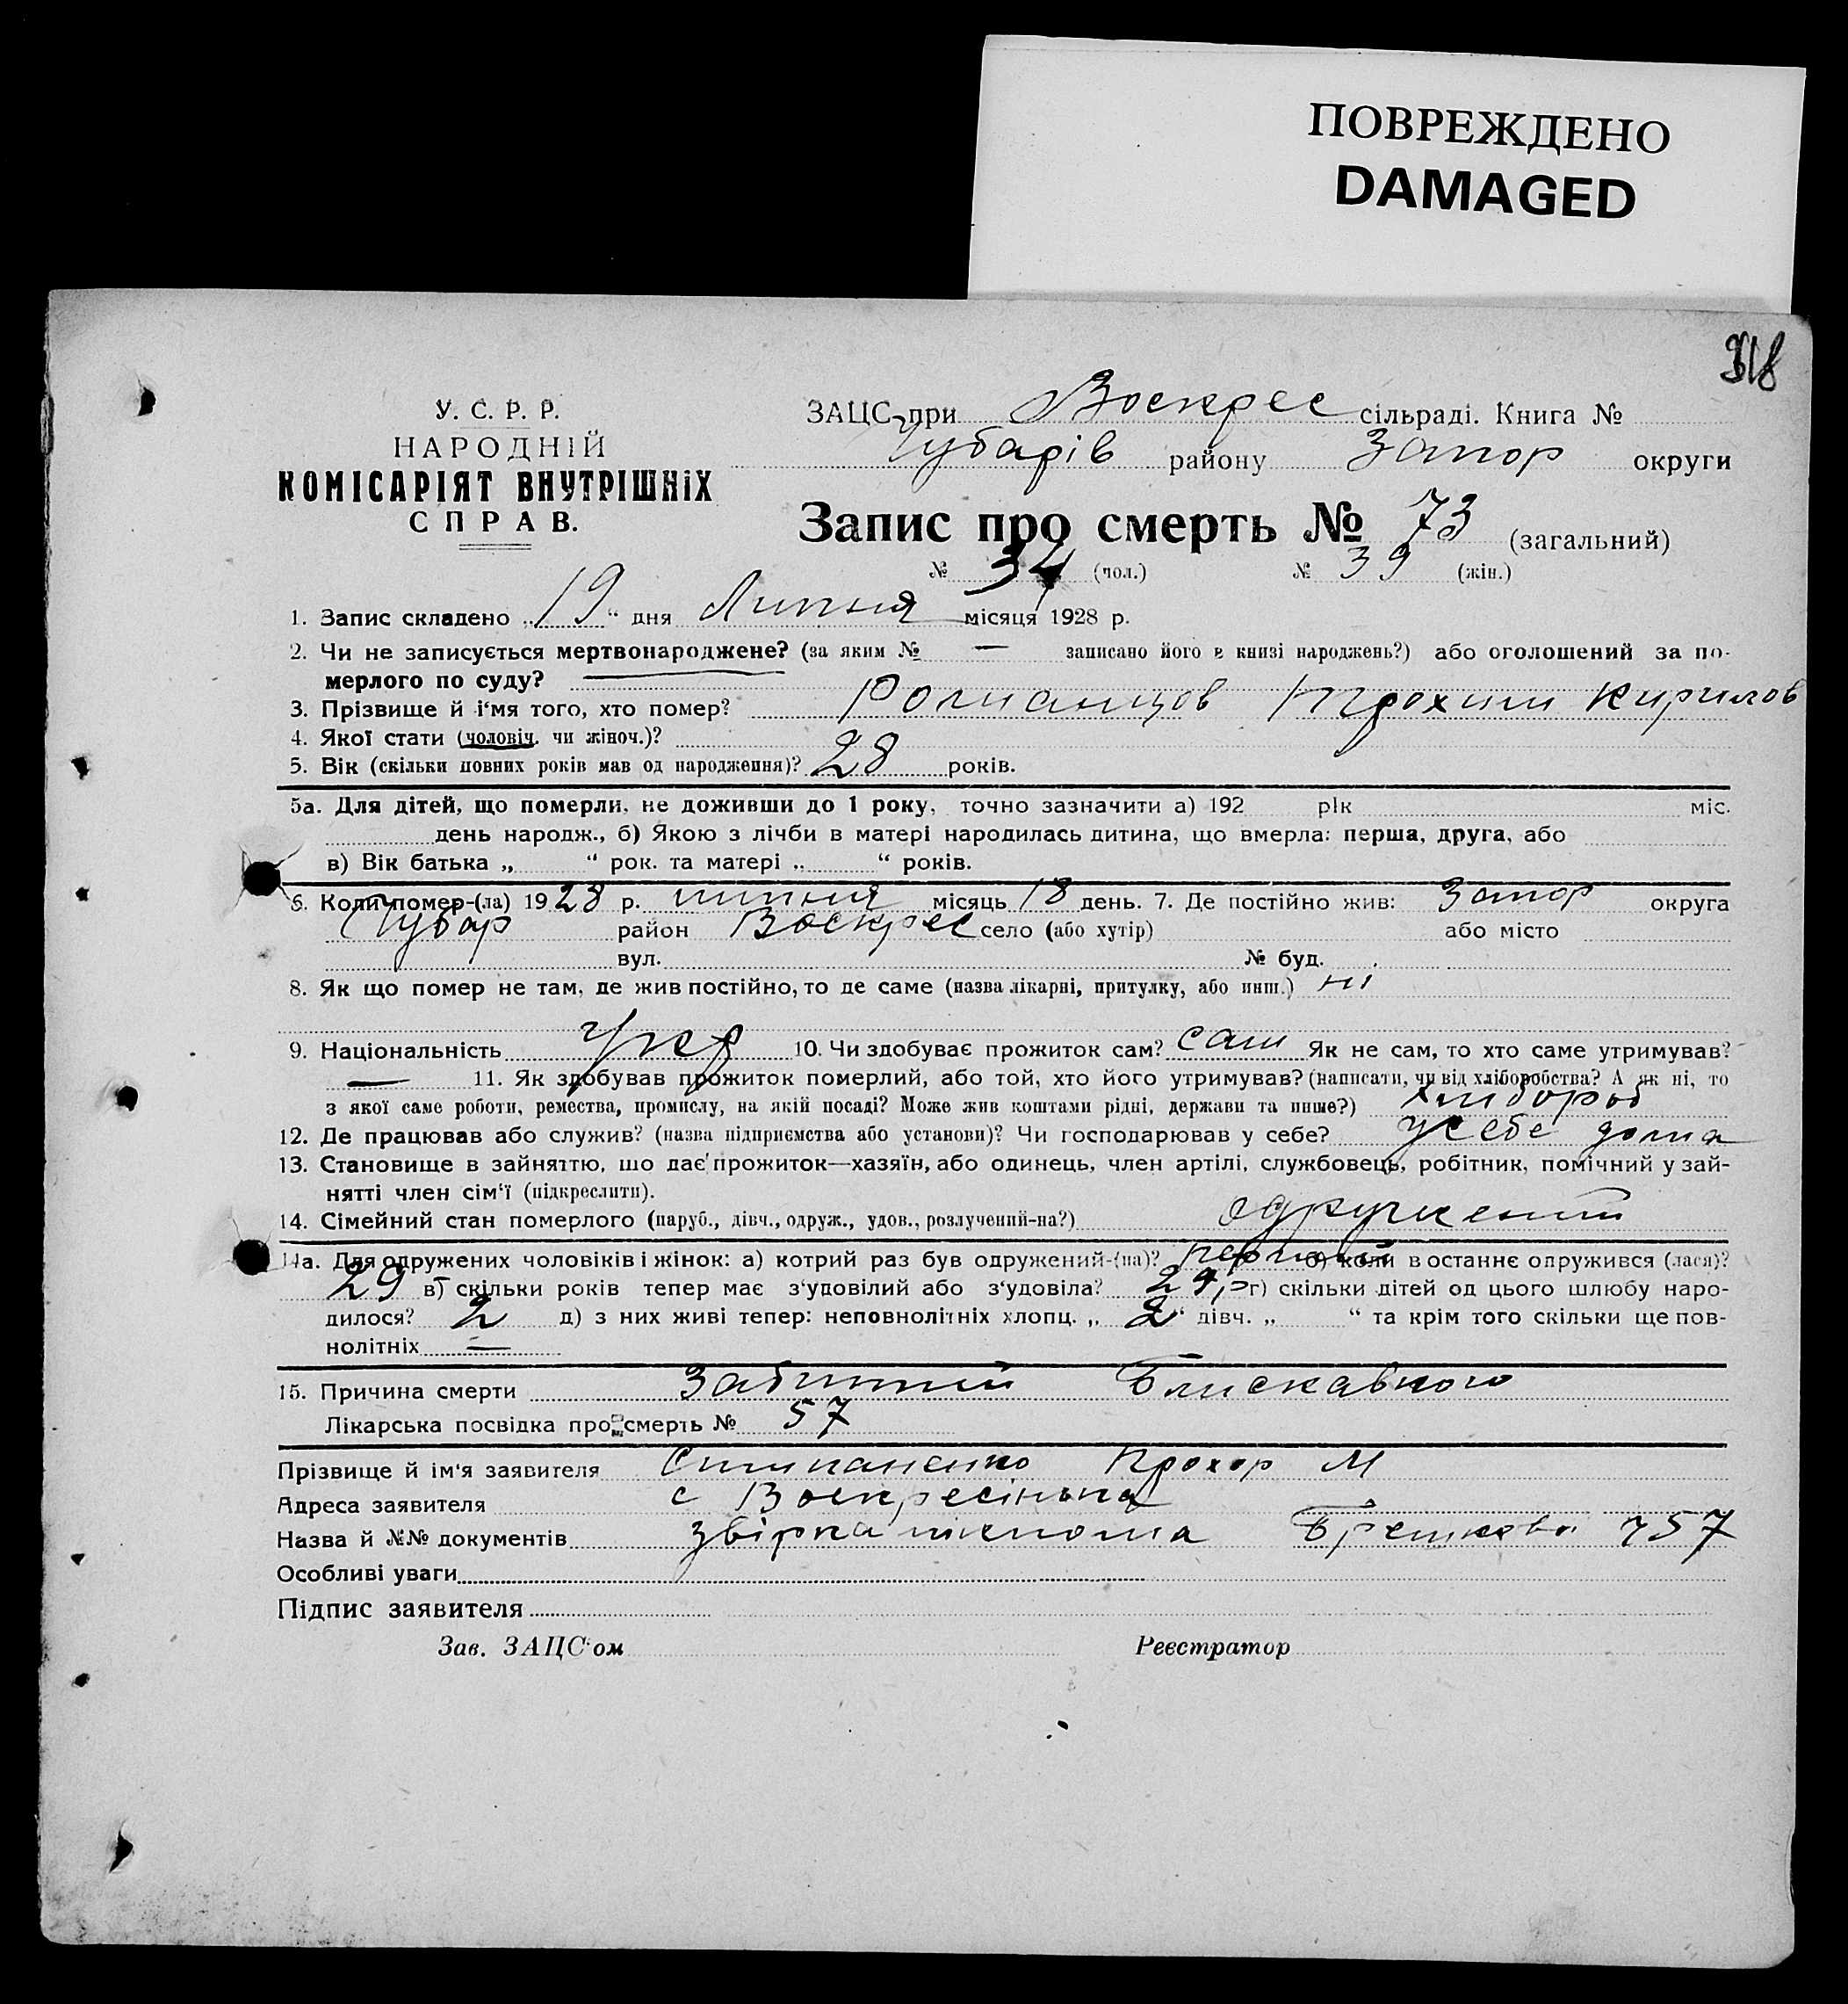 ПОВРЕЖДЕНО
DAMAGED
318
У. С. Р. Р.
НАРОДНІЙ
КОМІСАРІЯТ ВНУТРІШНІХ
СПРАВ.
ЗАЦС при Воскрес сільраді. Книга №
Чубарів району Запор округи
Запис про смерть № 73 (загальний)
№ 34 (чол.) № 39 (жін.)
1. Запис складено „19“ дня Липня місяця 1928 р.
2. Чи не записується мертвонароджене? (за яким № — записано його в книзі народжень?) або оголошений за по-
мерлого по суду? —
3. Прізвище й і'мя того, хто помер? Романцов Трохим Кирилов
4. Якої стати (чоловіч. чи жіноч.)?
5. Вік (скільки повних років мав од народження)? 28 років.
5а. Для дітей, що померли, не доживши до 1 року, точно зазначити а) 192 рік міс.
день народж., б) Якою з лічби в матері народилась дитина, що вмерла: перша, друга, або
в) Вік батька „ “ рок. та матері „ “ років.
6. Коли помер-(ла) 1928 р. липня місяць 18 день. 7. Де постійно жив: Запор округа
Чубар район Воскрес село (або хутір) або місто
вул. № буд.
8. Як що помер не там, де жив постійно, то де саме (назва лікарні, притулку, або инш.) ні
9. Національність Укр 10. Чи здобуває прожиток сам? сам Як не сам, то хто саме утримував?
— 11. Як здобував прожиток померлий, або той, хто його утримував? (написати, чи від хліборобства? А як ні, то
з якої саме роботи, ремества, промислу, на якій посаді? Може жив коштами рідні, держави та инше?) хлібороб
12. Де працював або служив? (назва підприємства або установи)? Чи господарював у себе? у себе дома
13. Становище в зайняттю, що дає прожиток—хазяїн, або одинець, член артілі, службовець, робітник, помічний у зай-
нятті член сім'ї (підкреслити).
14. Сімейний стан померлого (паруб., дівч., одруж., удов., розлучений-на?) одружений
14а. Для одружених чоловіків і жінок: а) котрий раз був одружений-(на)? перший б) коли в останнє одружився (лася)?
29 в) скільки років тепер має з'удовілий або з'удовіла? 29, г) скільки дітей од цього шлюбу наро-
дилося? 2 д) з них живі тепер: неповнолітніх хлопц. „ 2 “ дівч. „ “ та крім того скільки ще пов-
нолітніх —
15. Причина смерти Забитий Блискавкою
Лікарська посвідка про смерть № 57
Прізвище й ім'я заявителя Прохор М
Адреса заявителя с Воскресінька
Назва й №№ документів 57
Особливі уваги
Підпис заявителя
Зав. ЗАЦС'ом Реєстратор